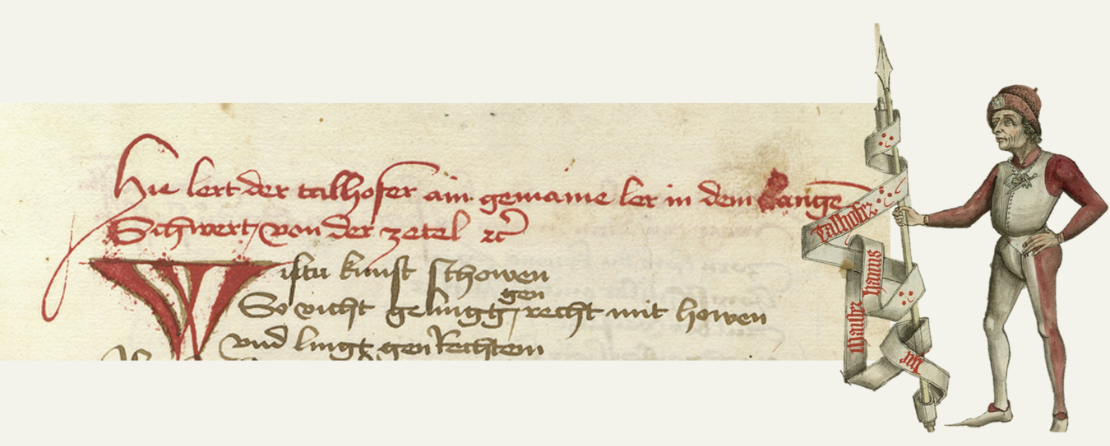 Hie lert der talhofer ain gemaine ler in dem Lange
Schwert von der zetel etc
Wiltu kunst schowen
gen
So vicht gelingg recht mit howen
vnd lingt gen Rechtem
talhofer
hanns
maister